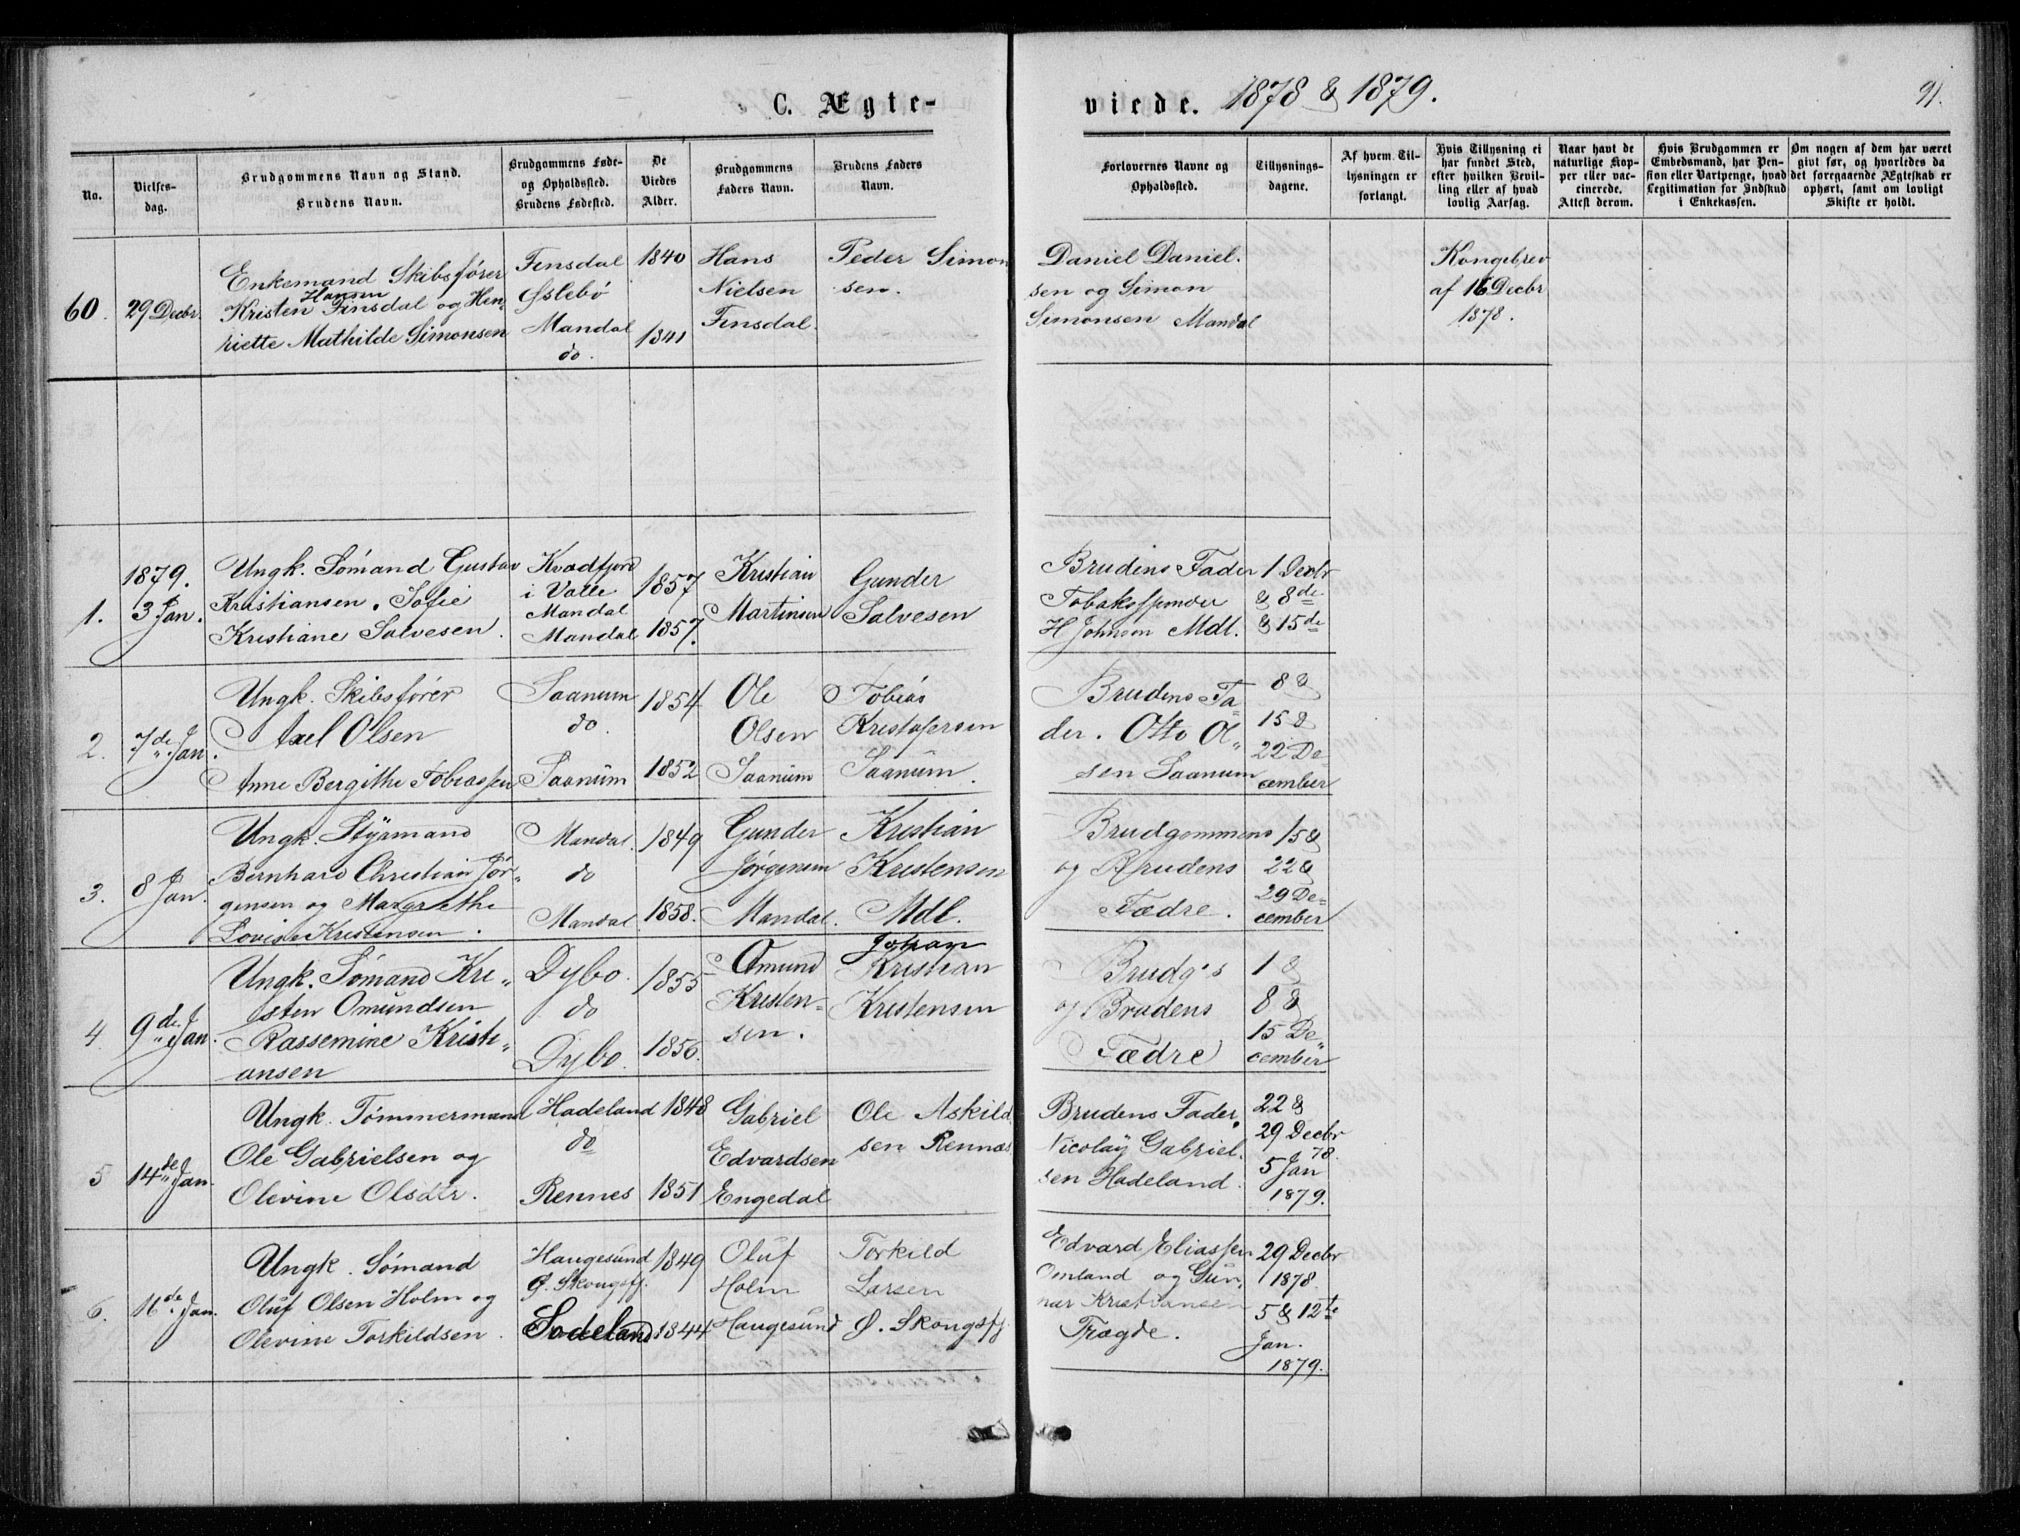 C. Ægte-
viede. 1878 & 1879.
91.
No.
Vielses-
dag.
Brudgommens Navn og Stand.
Brudens Navn.
Brudgommens Føde-
og Opholdssted.
Brudens Fødested.
De
Viedes
Alder.
Brudgommens
Faders Navn.
Brudens Faders
Navn.
Forlovernes Navne og
Opholdssted.
Tillysnings-
dagene.
Af hvem Til-
lysningen er
forlangt.
Hvis Tillysning ei
har fundet Sted,
efter hvilken Bevil-
ling eller af hvad
lovlig Aarsag.
Naar havt de
naturlige Kop-
per eller vac-
cinerede.
Attest derom.
Hvis Brudgommen er
Embedsmand, har Pen-
sion eller Vartpenge, hvad
Legitimation for Indskud
i Enkekassen.
Om nogen af dem har været
givt før, og hvorledes da
det foregaaende Ægteskab er
ophørt, samt om lovligt
Skifte er holdt.
60.
29 Decbr.
Enkemand Skibsfører
Hansen
Kristen Finsdal og Hen-
riette Mathilde Simonsen
Finsdal
Øslebø
Mandal
do.
1840
1841
Hans
Nielsen
Finsdal.
Peder Simon
sen.
Daniel Daniel-
sen og Simon
Simonsen Mandal
Kongebrev
af 16 Decbr
1878.
1.
1879.
3 Jan.
Ungk. Sømand Gustav
Kristiansen. Sofie
Kristiane Salvesen.
i Valle
Mandal
Mandal
1857
1857.
Kristian
Martinsen
Gunder
Salvesen
Brudens Fader
H Johnsen Mdl.
1 Decbr
& 8de
& 15de
2.
7de Jan.
Ungk. Skibsfører
Axel Olsen
Anne Bergithe Tobiassen
Saanum
do.
Saanum
1854
1852
Ole
Olsen
Saanum
Tobias
Kristofersen
Saanum.
Brudens Fa-
der. Otto Ol-
sen Saanum
8 &
15 &
22 De-
cember
3.
8 Jan.
Ungk. Styrmand
Bernhard Christian Jør-
gensen og Margrethe
Lovise Kristensen.
Mandal.
do
Mandal.
1849
1858.
Gunder
Jørgensen
Mandal.
Kristian
Kristensen
Mdl.
Brudgommens
og Brudens
Fædre.
15 &
22 &
29 De-
cember
4
9de Jan.
Ungk. Sømand Kri-
sten Omundsen
Rassemine Kristi-
ansen
Dybo.
do
Dybo.
1855
1856.
Omund
Kristen-
sen.
Johan
Kristian
Kristensen
Brudg's
og Brudens
Fædre
1 &
8 &
15 De-
cember
5
14de Jan.
Ungk. Tømmermand
Ole Gabrielsen og
Olevine Olsdtr.
Hadeland
do
Rennes
1848
1851
Gabriel
Edvardsen
Engedal
Ole Askild
sen Rennæs
Brudens Fader,
Nicolay Gabriel-
sen Hadeland.
22 &
29 Decbr
78.
5 Jan
1879.
6.
16de Jan.
Ungk. Sømand
Oluf Olsen Holm og
Olevine Torkildsen.
Haugesund
Ø. Skongsfj.
Sodeland
1849
1844
Oluf
Holm
Haugesund
Torkild
Larsen
Ø. Skongsfj
Edvard Eliassen
Omland og Gun-
nar Kristiansen
Trægde.
29 Decbr
1878
5 & 12te
Jan.
1879.